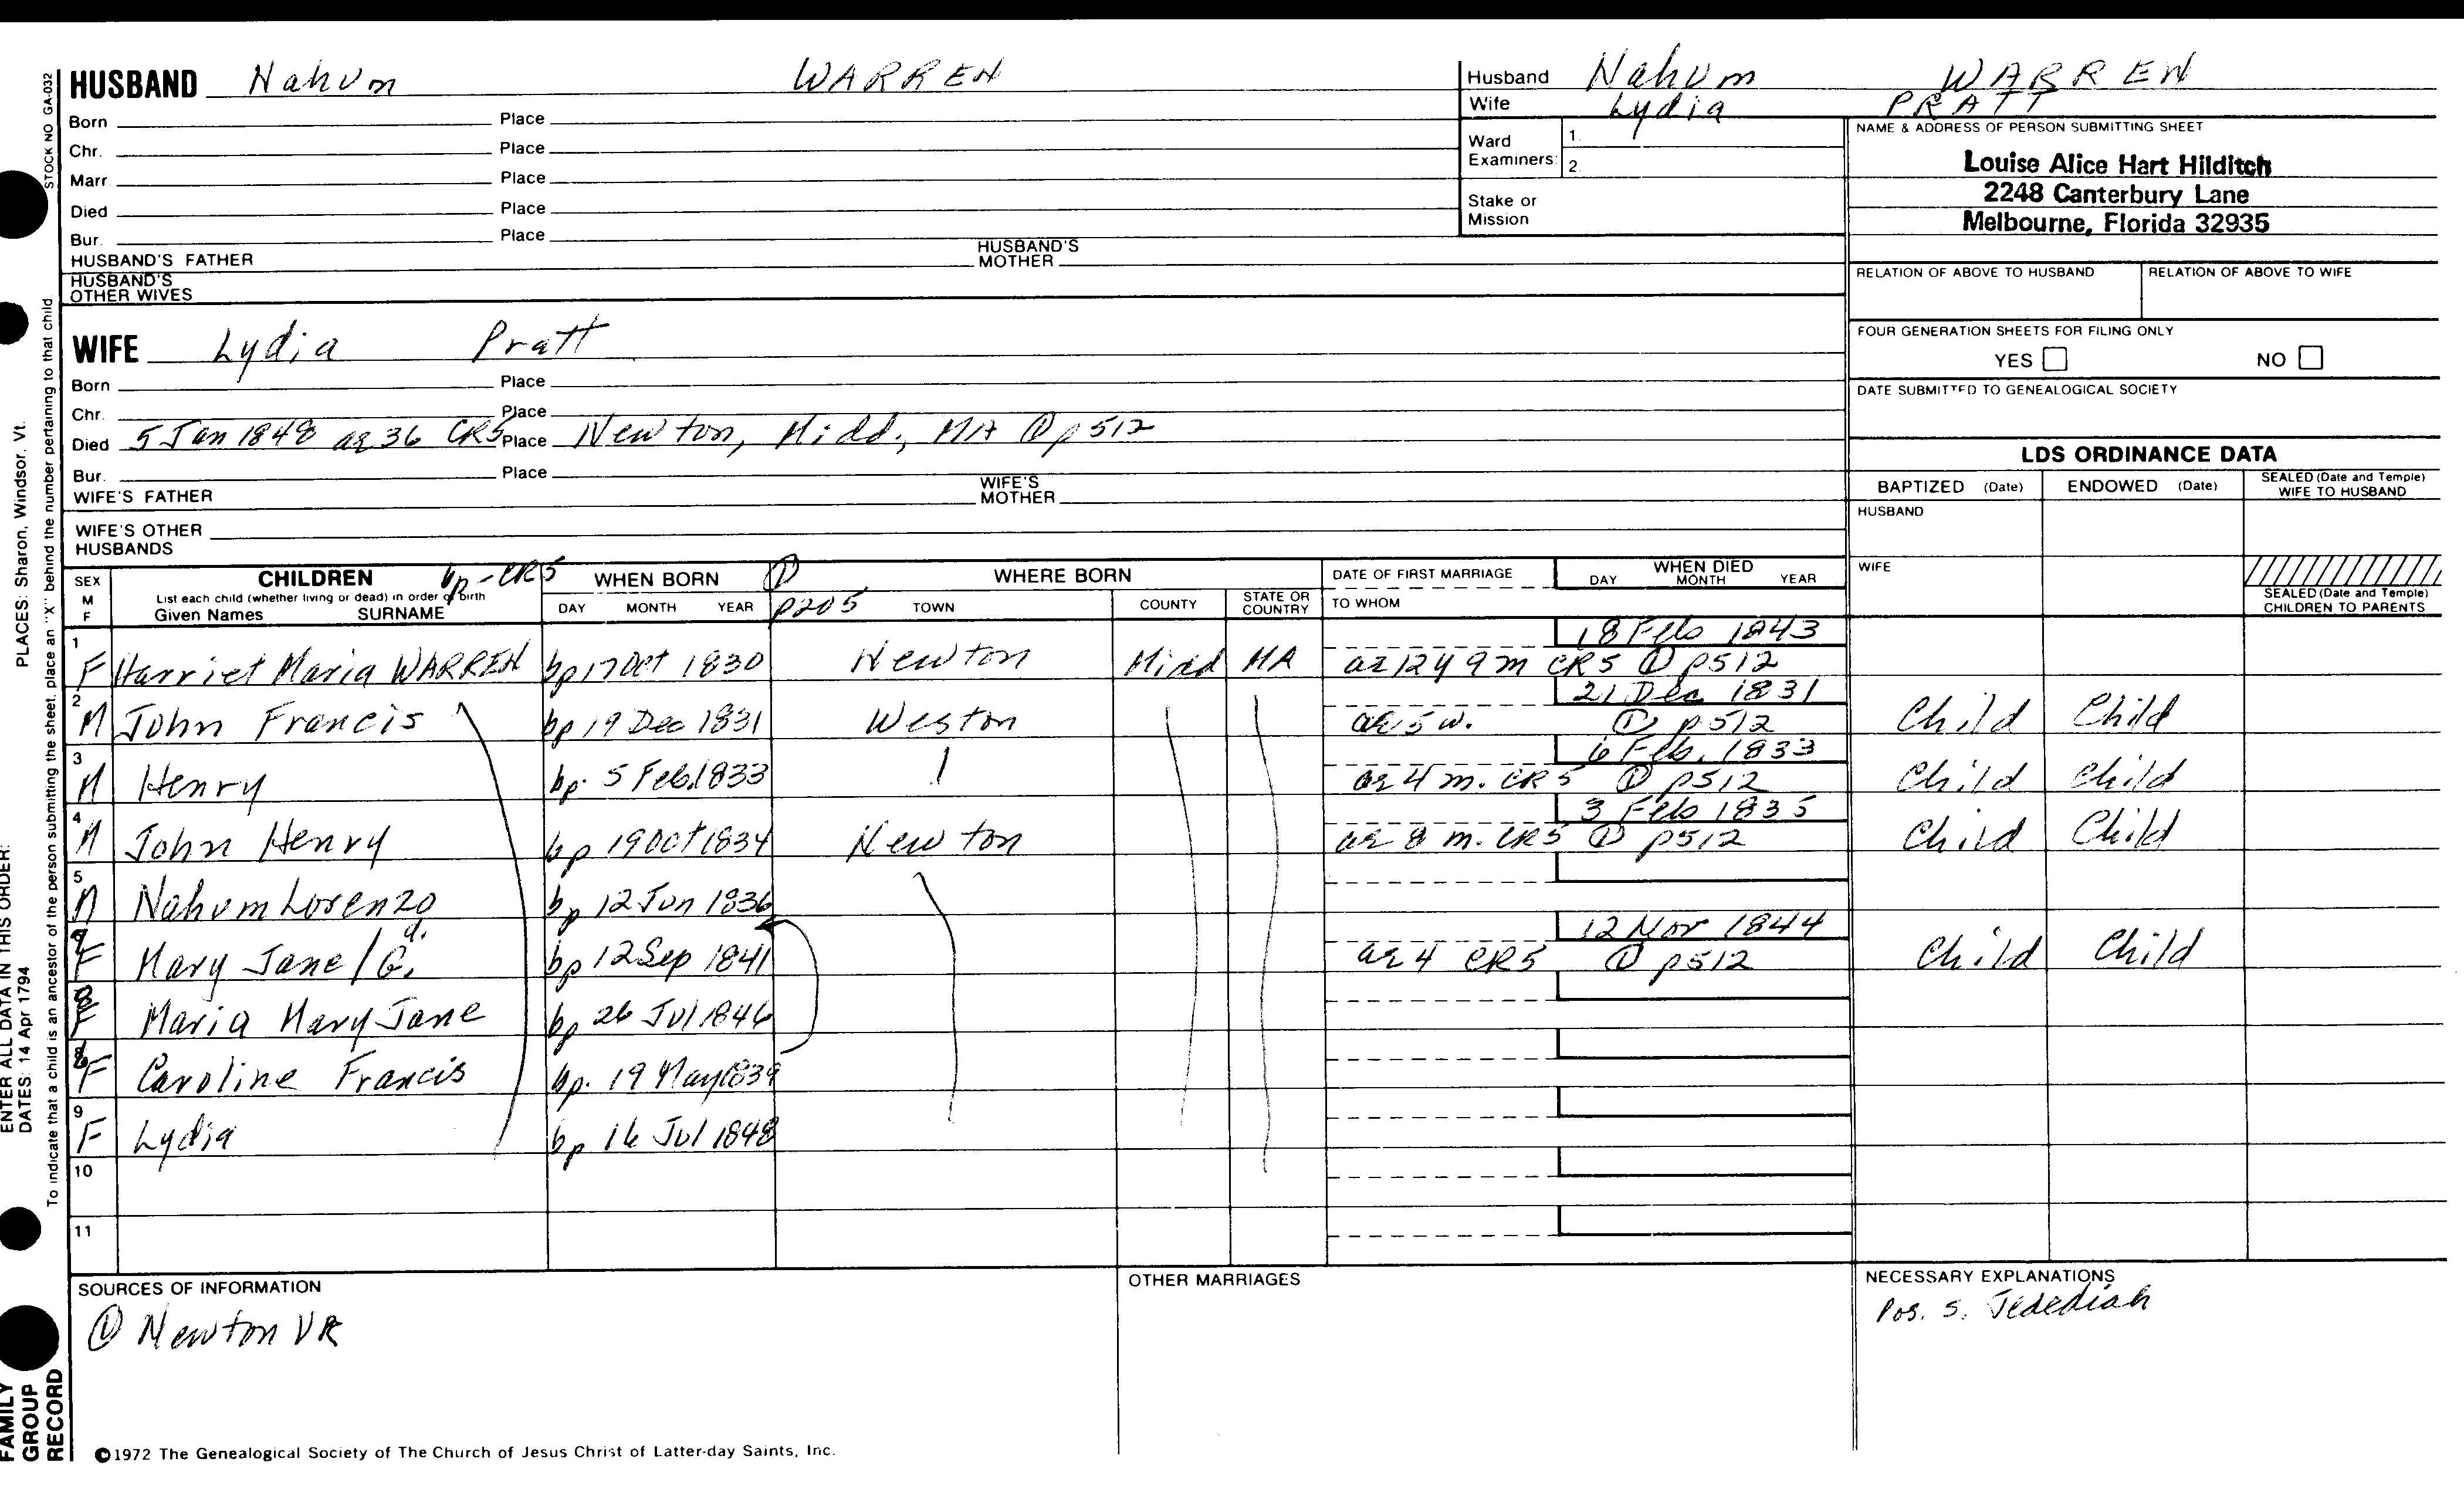 HUSBAND Nahum WARREN
Born Place
Chr. Place
Marr. Place
Died Place
Bur. Place
HUSBAND'S FATHER HUSBAND'S MOTHER
HUSBAND'S OTHER WIVES
Husband Nahum WARREN
Wife Lydia PRATT
Ward Examiners: 1.
2.
Stake or Mission
NAME & ADDRESS OF PERSON SUBMITTING SHEET
Louise Alice Hart Hilditch
2248 Canterbury Lane
Melbourne, Florida 32935
RELATION OF ABOVE TO HUSBAND RELATION OF ABOVE TO WIFE
FOUR GENERATION SHEETS FOR FILING ONLY
YES NO
DATE SUBMITTED TO GENEALOGICAL SOCIETY
WIFE Lydia Pratt
Born Place
Chr. Place
Died 5 Jan 1848 ae 36 CR5 Place Newton, Midd, MA ① p512
Bur. Place
WIFE'S FATHER WIFE'S MOTHER
WIFE'S OTHER HUSBANDS
LDS ORDINANCE DATA
BAPTIZED (Date) ENDOWED (Date) SEALED (Date and Temple) WIFE TO HUSBAND
HUSBAND
WIFE
SEALED (Date and Temple) CHILDREN TO PARENTS
SEX M F CHILDREN bp-CR5 WHEN BORN ① WHERE BORN DATE OF FIRST MARRIAGE WHEN DIED
List each child (whether living or dead) in order of birth DAY MONTH YEAR p205 TOWN COUNTY STATE OR COUNTRY TO WHOM DAY MONTH YEAR
Given Names SURNAME
18 Feb 1843
1 F Harriet Maria WARREN bp 17 Oct 1830 Newton Midd MA ae 12 y 9 m CR5 ① p512
21 Dec 1831
2 M John Francis bp 19 Dec 1831 Weston ae 5 w. ① p512 Child Child
6 Feb. 1833
3 M Henry bp. 5 Feb. 1833 ae 4 m. CR5 ① p512 Child Child
3 Feb 1835
4 M John Henry bp 19 Oct 1834 Newton ae 8 m. CR5 ① p512 Child Child
5 M Nahum Lorenzo bp 12 Jun 1836
12 Nov 1844
F Mary Jane / G. d. bp 12 Sep 1841 ae 4 CR5 ① p512 Child Child
F Maria Mary Jane bp 26 Jul 1846
F Caroline Francis bp. 19 May 1839
9 F Lydia bp 16 Jul 1848
10
11
SOURCES OF INFORMATION
① Newton VR
OTHER MARRIAGES
NECESSARY EXPLANATIONS
Pos. s. Jedediah
©1972 The Genealogical Society of The Church of Jesus Christ of Latter-day Saints, Inc.
STOCK NO GA-032
To indicate that a child is an ancestor of the person submitting the sheet, place an "X" behind the number pertaining to that child
PLACES: Sharon, Windsor, Vt.
ENTER ALL DATA IN THIS ORDER:
DATES: 14 Apr 1794
FAMILY GROUP RECORD